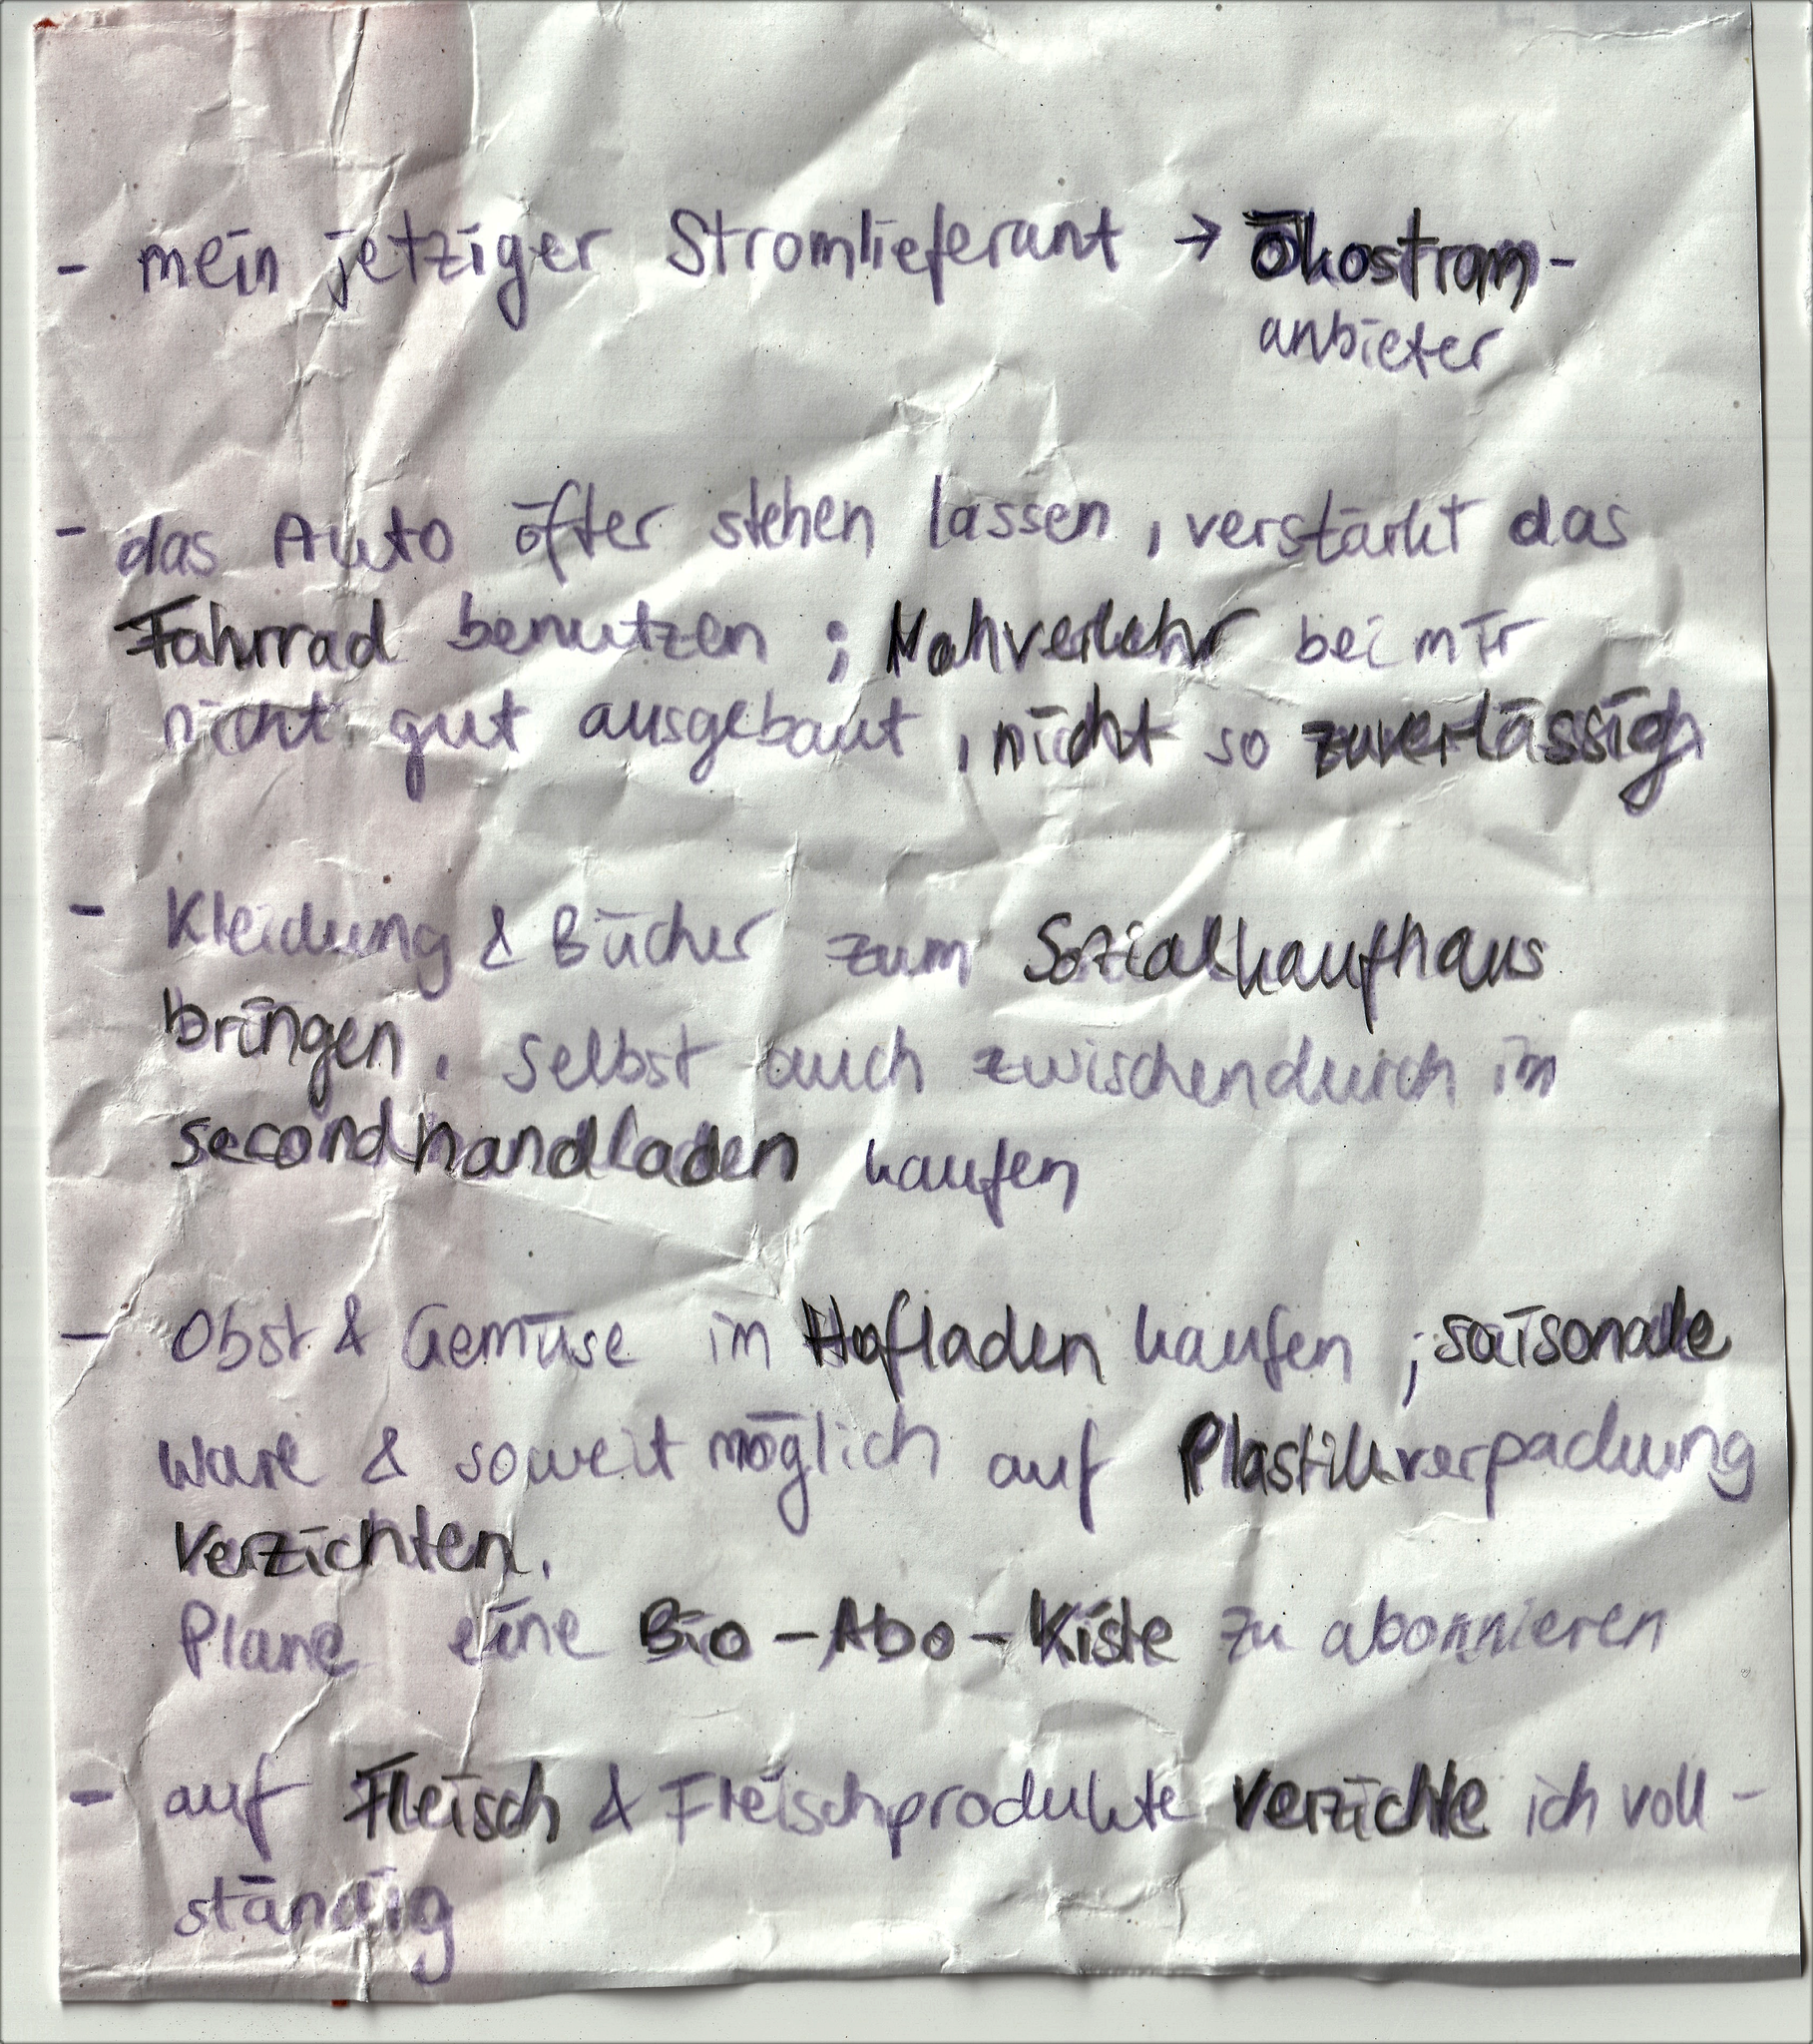 - mein jetziger Stromlieferant → Ökostrom-
anbieter
- das Auto öfter stehen lassen, verstärkt das
Fahrrad benutzen ; Nahverkehr bei mir
nicht gut ausgebaut, nicht so zuverlässig
- Kleidung & Bücher zum Sozialkaufhaus
bringen. Selbst auch zwischendurch im
secondhandladen kaufen
- Obst & Gemüse im Hofladen kaufen ; saisonale
Ware & soweit möglich auf Plastikverpackung
verzichten.
Plane eine Bio-Abo-Kiste zu abonnieren
- auf Fleisch & Fleischprodukte verzichte ich voll-
ständig